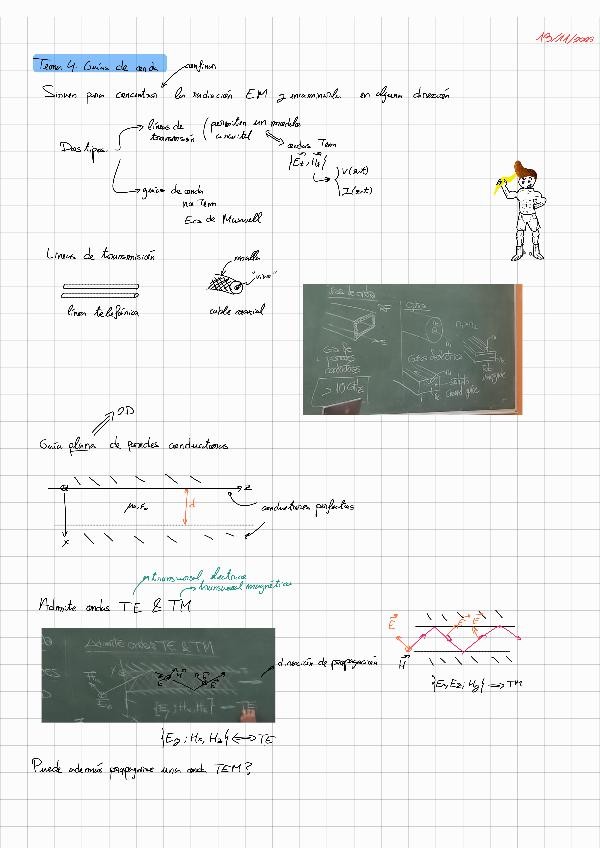 19/11/2023
Tema 4. Guías de onda
confinar
Sirven para concentrar la radiación EM y encaminarla en alguna dirección
Dos tipos
líneas de transmisión (permiten un modelo circuital
ondas TEM
V(z,t)
I(z,t)
guías de onda
no TEM
Ecs de Maxwell
Líneas de transmisión
malla
"vivo"
línea telefónica
cable coaxial
Guía de paredes conductoras
> 10 GHz
Guía dieléctrica
2D
Guía plana de paredes conductoras
z
μ₀, ε₀
d
conductores perfectos
x
transversal eléctrica
transversal magnética
Admite ondas TE & TM
Admite ondas TE & TM
dirección de propagación
E
H
{Ex, Ez; Hy} ⟹ TM
{Ey; Hx, Hz} ⟷ TE
Puede además propagarse una onda TEM?